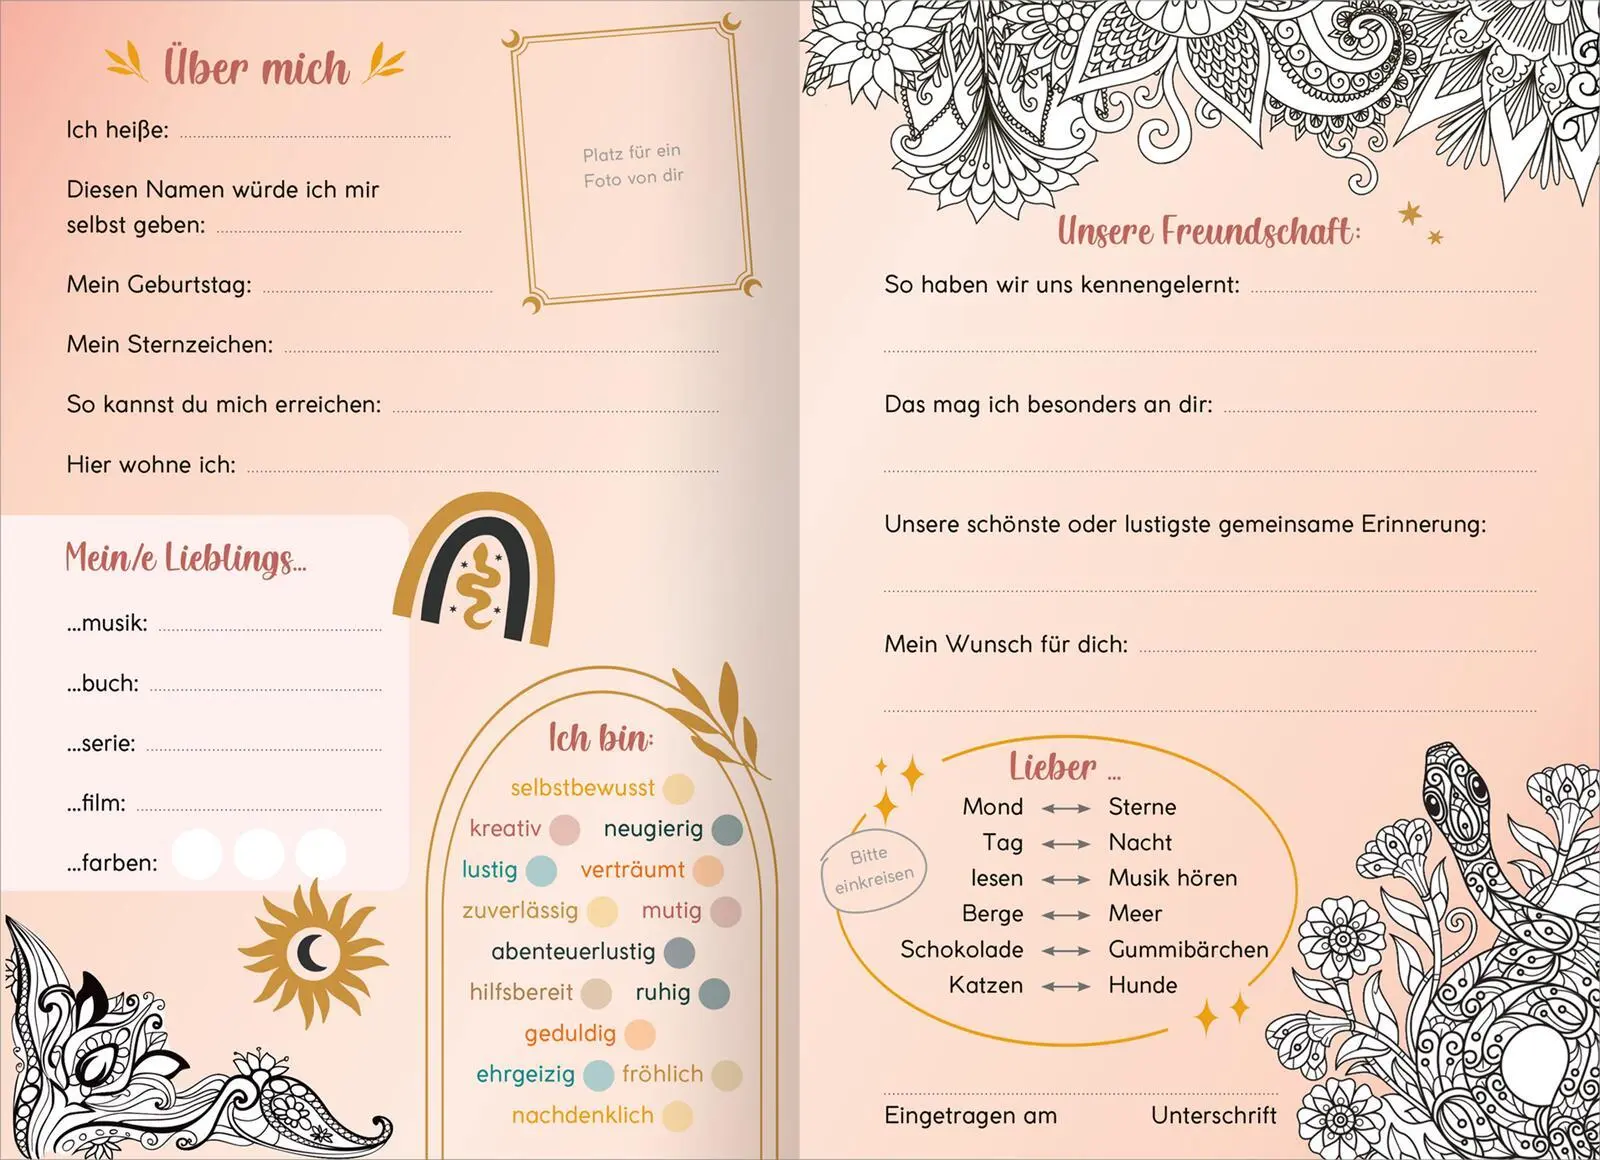 Über mich
Ich heiße:
Diesen Namen würde ich mir
selbst geben:
Mein Geburtstag:
Mein Sternzeichen:
So kannst du mich erreichen:
Hier wohne ich:
Platz für ein
Foto von dir
Mein/e Lieblings...
...musik:
...buch:
...serie:
...film:
...farben:
Ich bin:
selbstbewusst
kreativ neugierig
lustig verträumt
zuverlässig mutig
abenteuerlustig
hilfsbereit ruhig
geduldig
ehrgeizig fröhlich
nachdenklich
Unsere Freundschaft:
So haben wir uns kennengelernt:
Das mag ich besonders an dir:
Unsere schönste oder lustigste gemeinsame Erinnerung:
Mein Wunsch für dich:
Lieber ...
Mond Sterne
Tag Nacht
lesen Musik hören
Berge Meer
Schokolade Gummibärchen
Katzen Hunde
Bitte
einkreisen
Eingetragen am Unterschrift